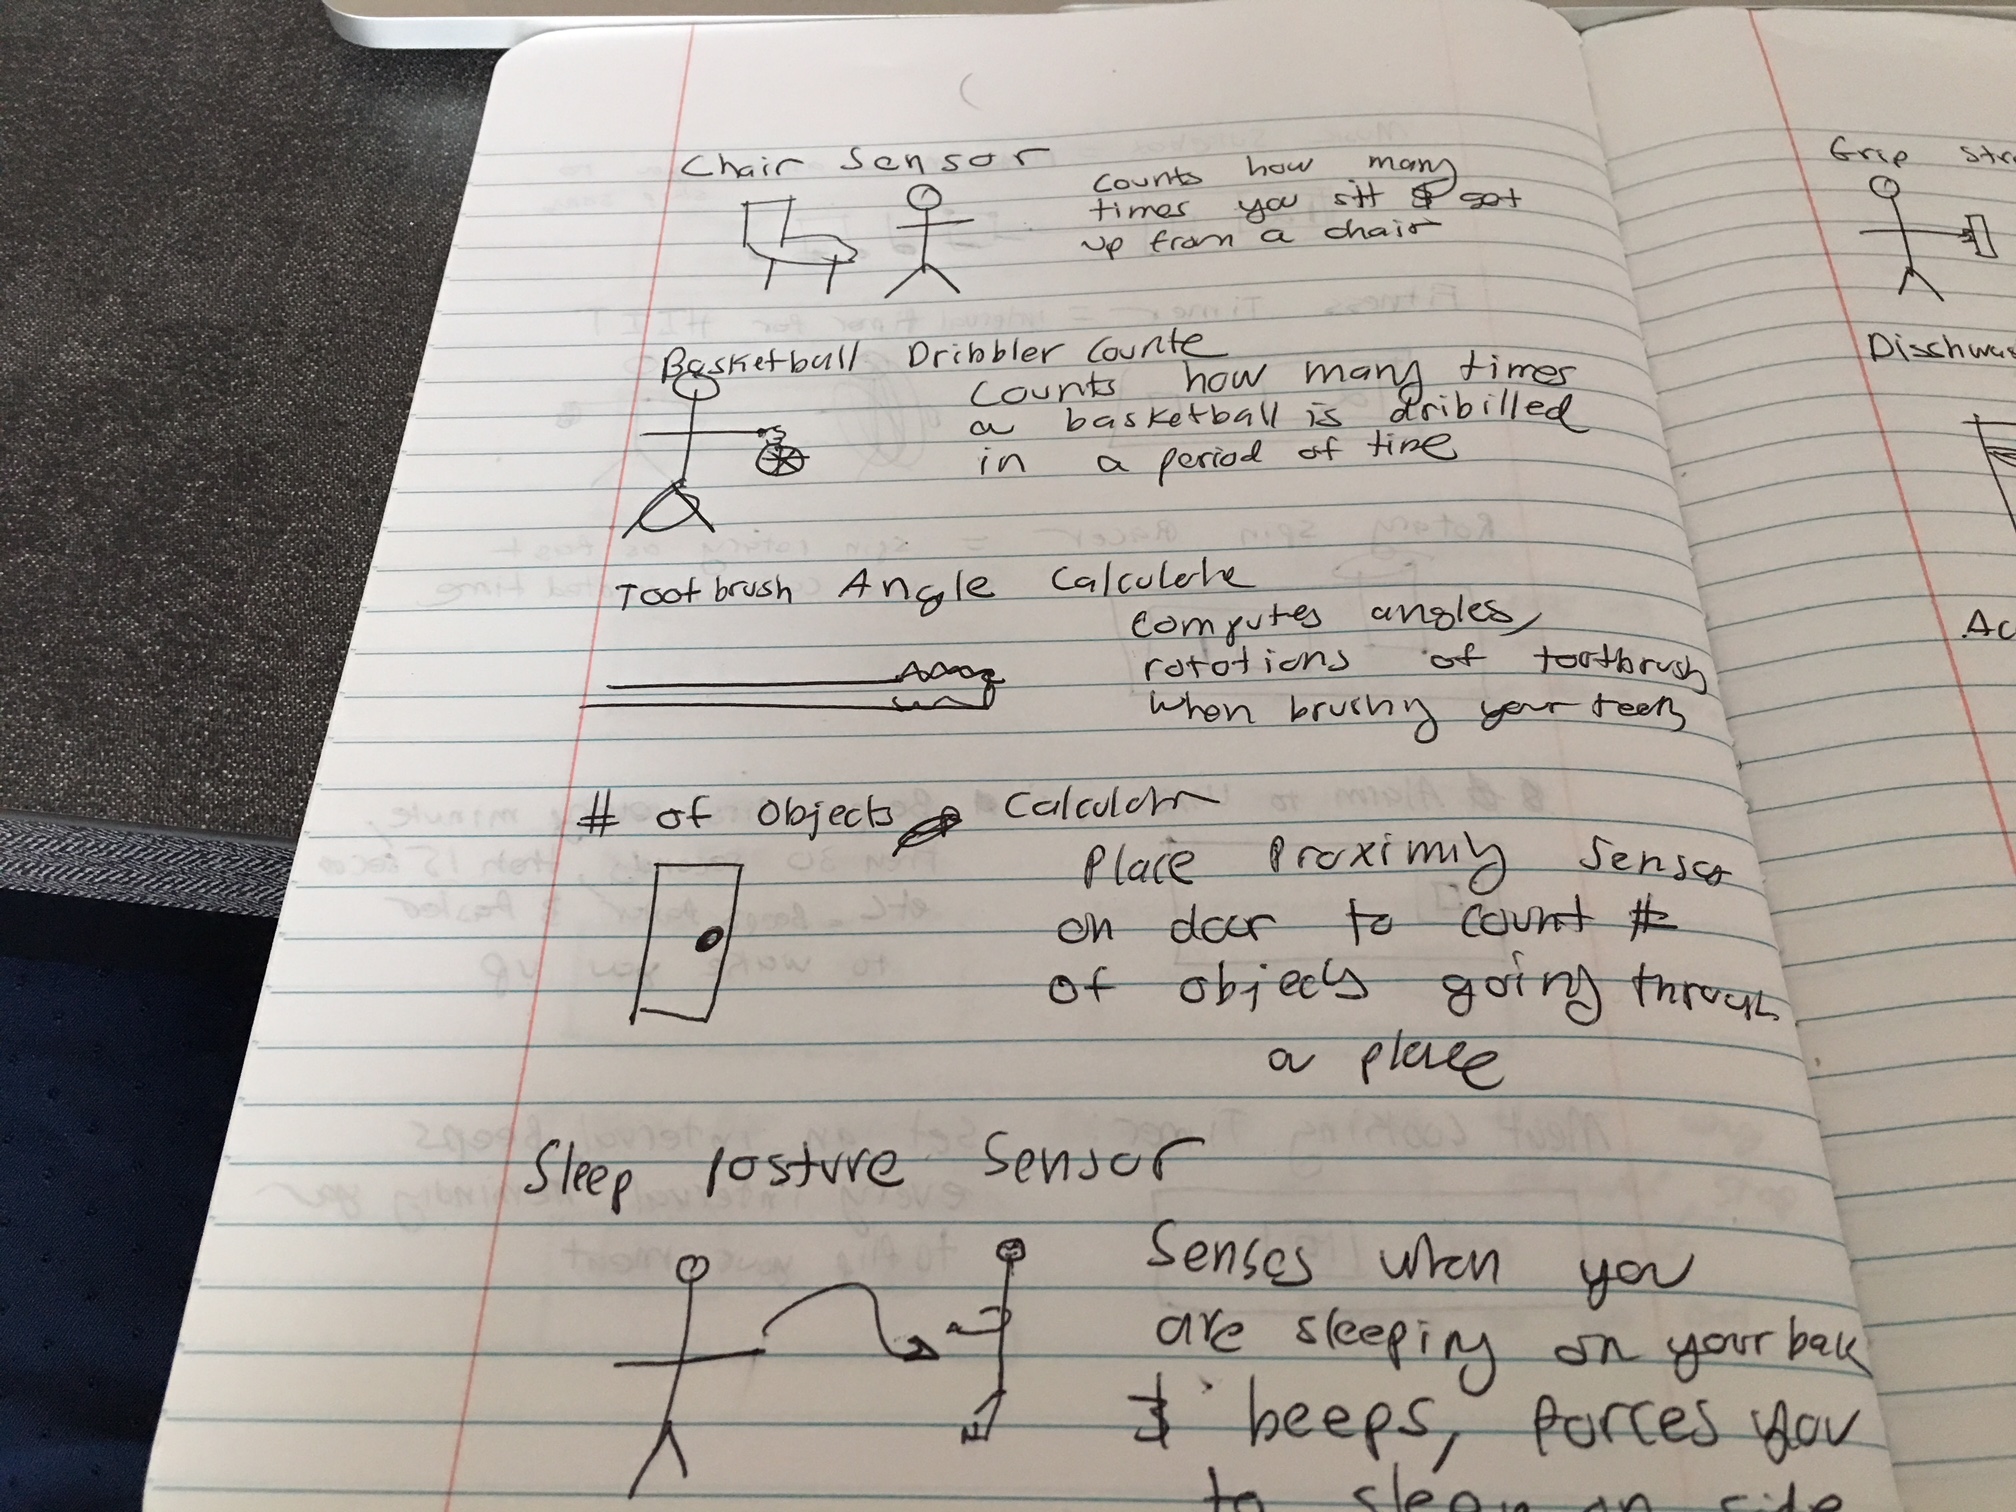 Chair Sensor
Counts how many
times you sit got
up from a chair
Basketball Dribbler Counte
Counts how many times
a basketball is dribilled
in a period of time
Tootbrush Angle Calculate
Computes angles,
rotations of
when brushing your
# of objects Calculatr
Place Proximiy Sensor
on door to count #
of objects going through
a place
Sleep Posture Sensor
Senses when you
are sleeping on your back
beeps, forces you
to sleep on side
Grip Str
Dishwas
Ac